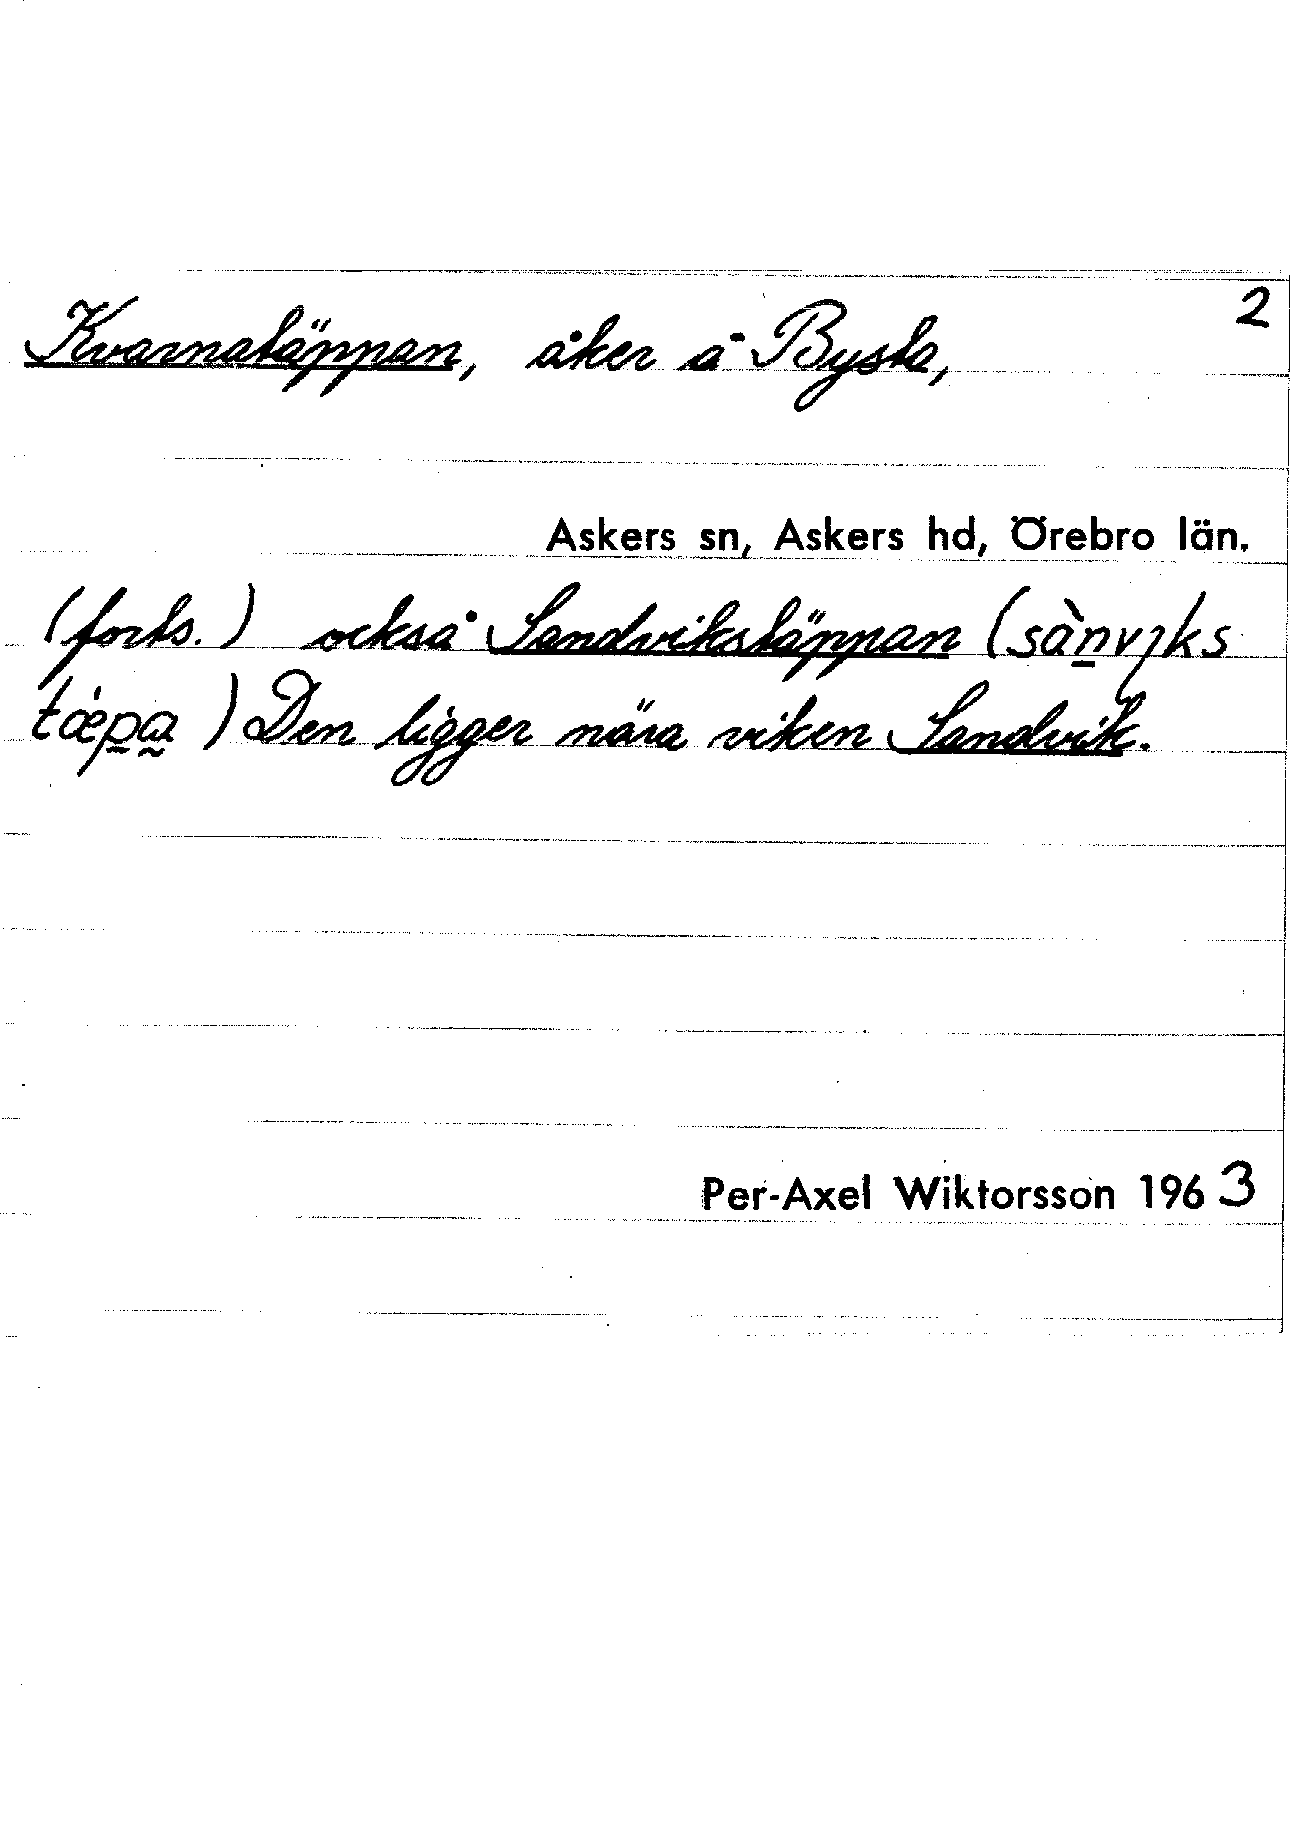 2
Kvarnatäppan, åker å Bysta,
Askers sn, Askers hd, Örebro län.
(forts.) också Sandvikstäppan (sànvıks
tǽpa) Den ligger nära viken Sandvik.
Per-Axel Wiktorsson 1963